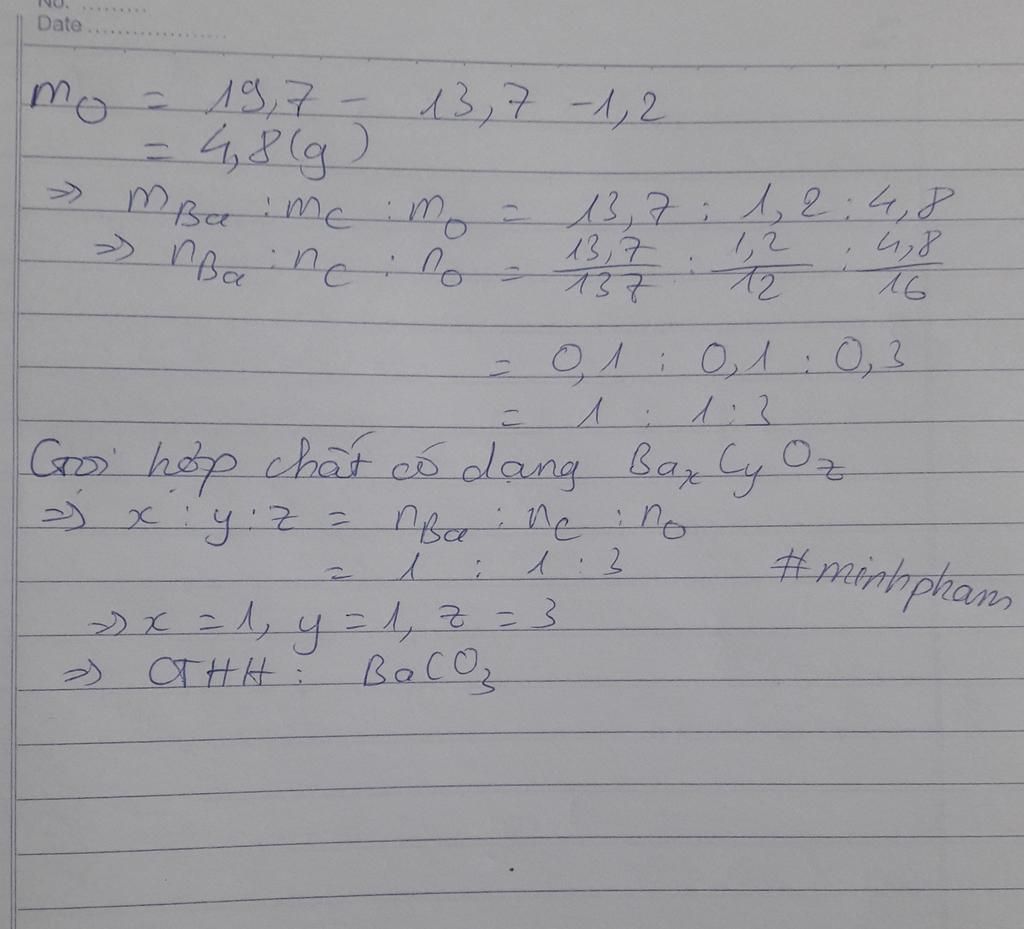 No. .........
Date ....................
m_O = 19,7 - 13,7 - 1,2
= 4,8(g)
=> m_Ba : m_C : m_O = 13,7 : 1,2 : 4,8
=> n_Ba : n_C : n_O = 13,7/137 : 1,2/12 : 4,8/16
= 0,1 : 0,1 : 0,3
= 1 : 1 : 3
Gọi hợp chất có dạng Ba_xC_yO_z
=> x : y : z = n_Ba : n_C : n_O
= 1 : 1 : 3
#minhpham
=> x = 1, y = 1, z = 3
=> CTHH : BaCO_3